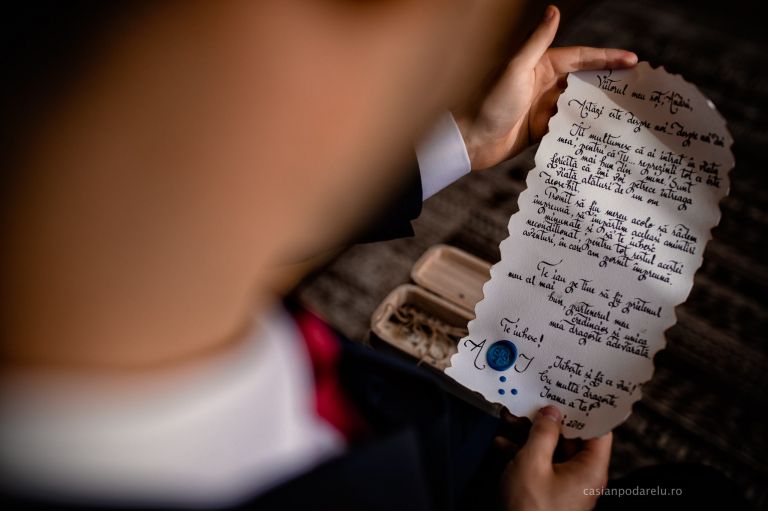 Viitorul meu soț, Andrei,
Astăzi este despre noi... despre noi doi
Îți mulțumesc că ai intrat în viața
mea, pentru că Tu... reprezinți tot ce este
mai bun din mine. Sunt
fericită că îmi voi petrece întreaga
viață alături de un om
deosebit.
Promit să fiu mereu acolo să râdem
împreună, să împărțim aceleași amintiri
minunate și să te iubesc
necondiționat, pentru tot restul acestei
aventuri, în care am pornit împreună.
Te iau pe tine să fii prietenul
meu cel mai bun, partenerul meu
credincios și unica
mea dragoste adevărată.
Te iubesc!
A I
Iubește și fă ce vrei!
Cu multă dragoste,
Ioana a ta!
2019
casianpodarelu.ro